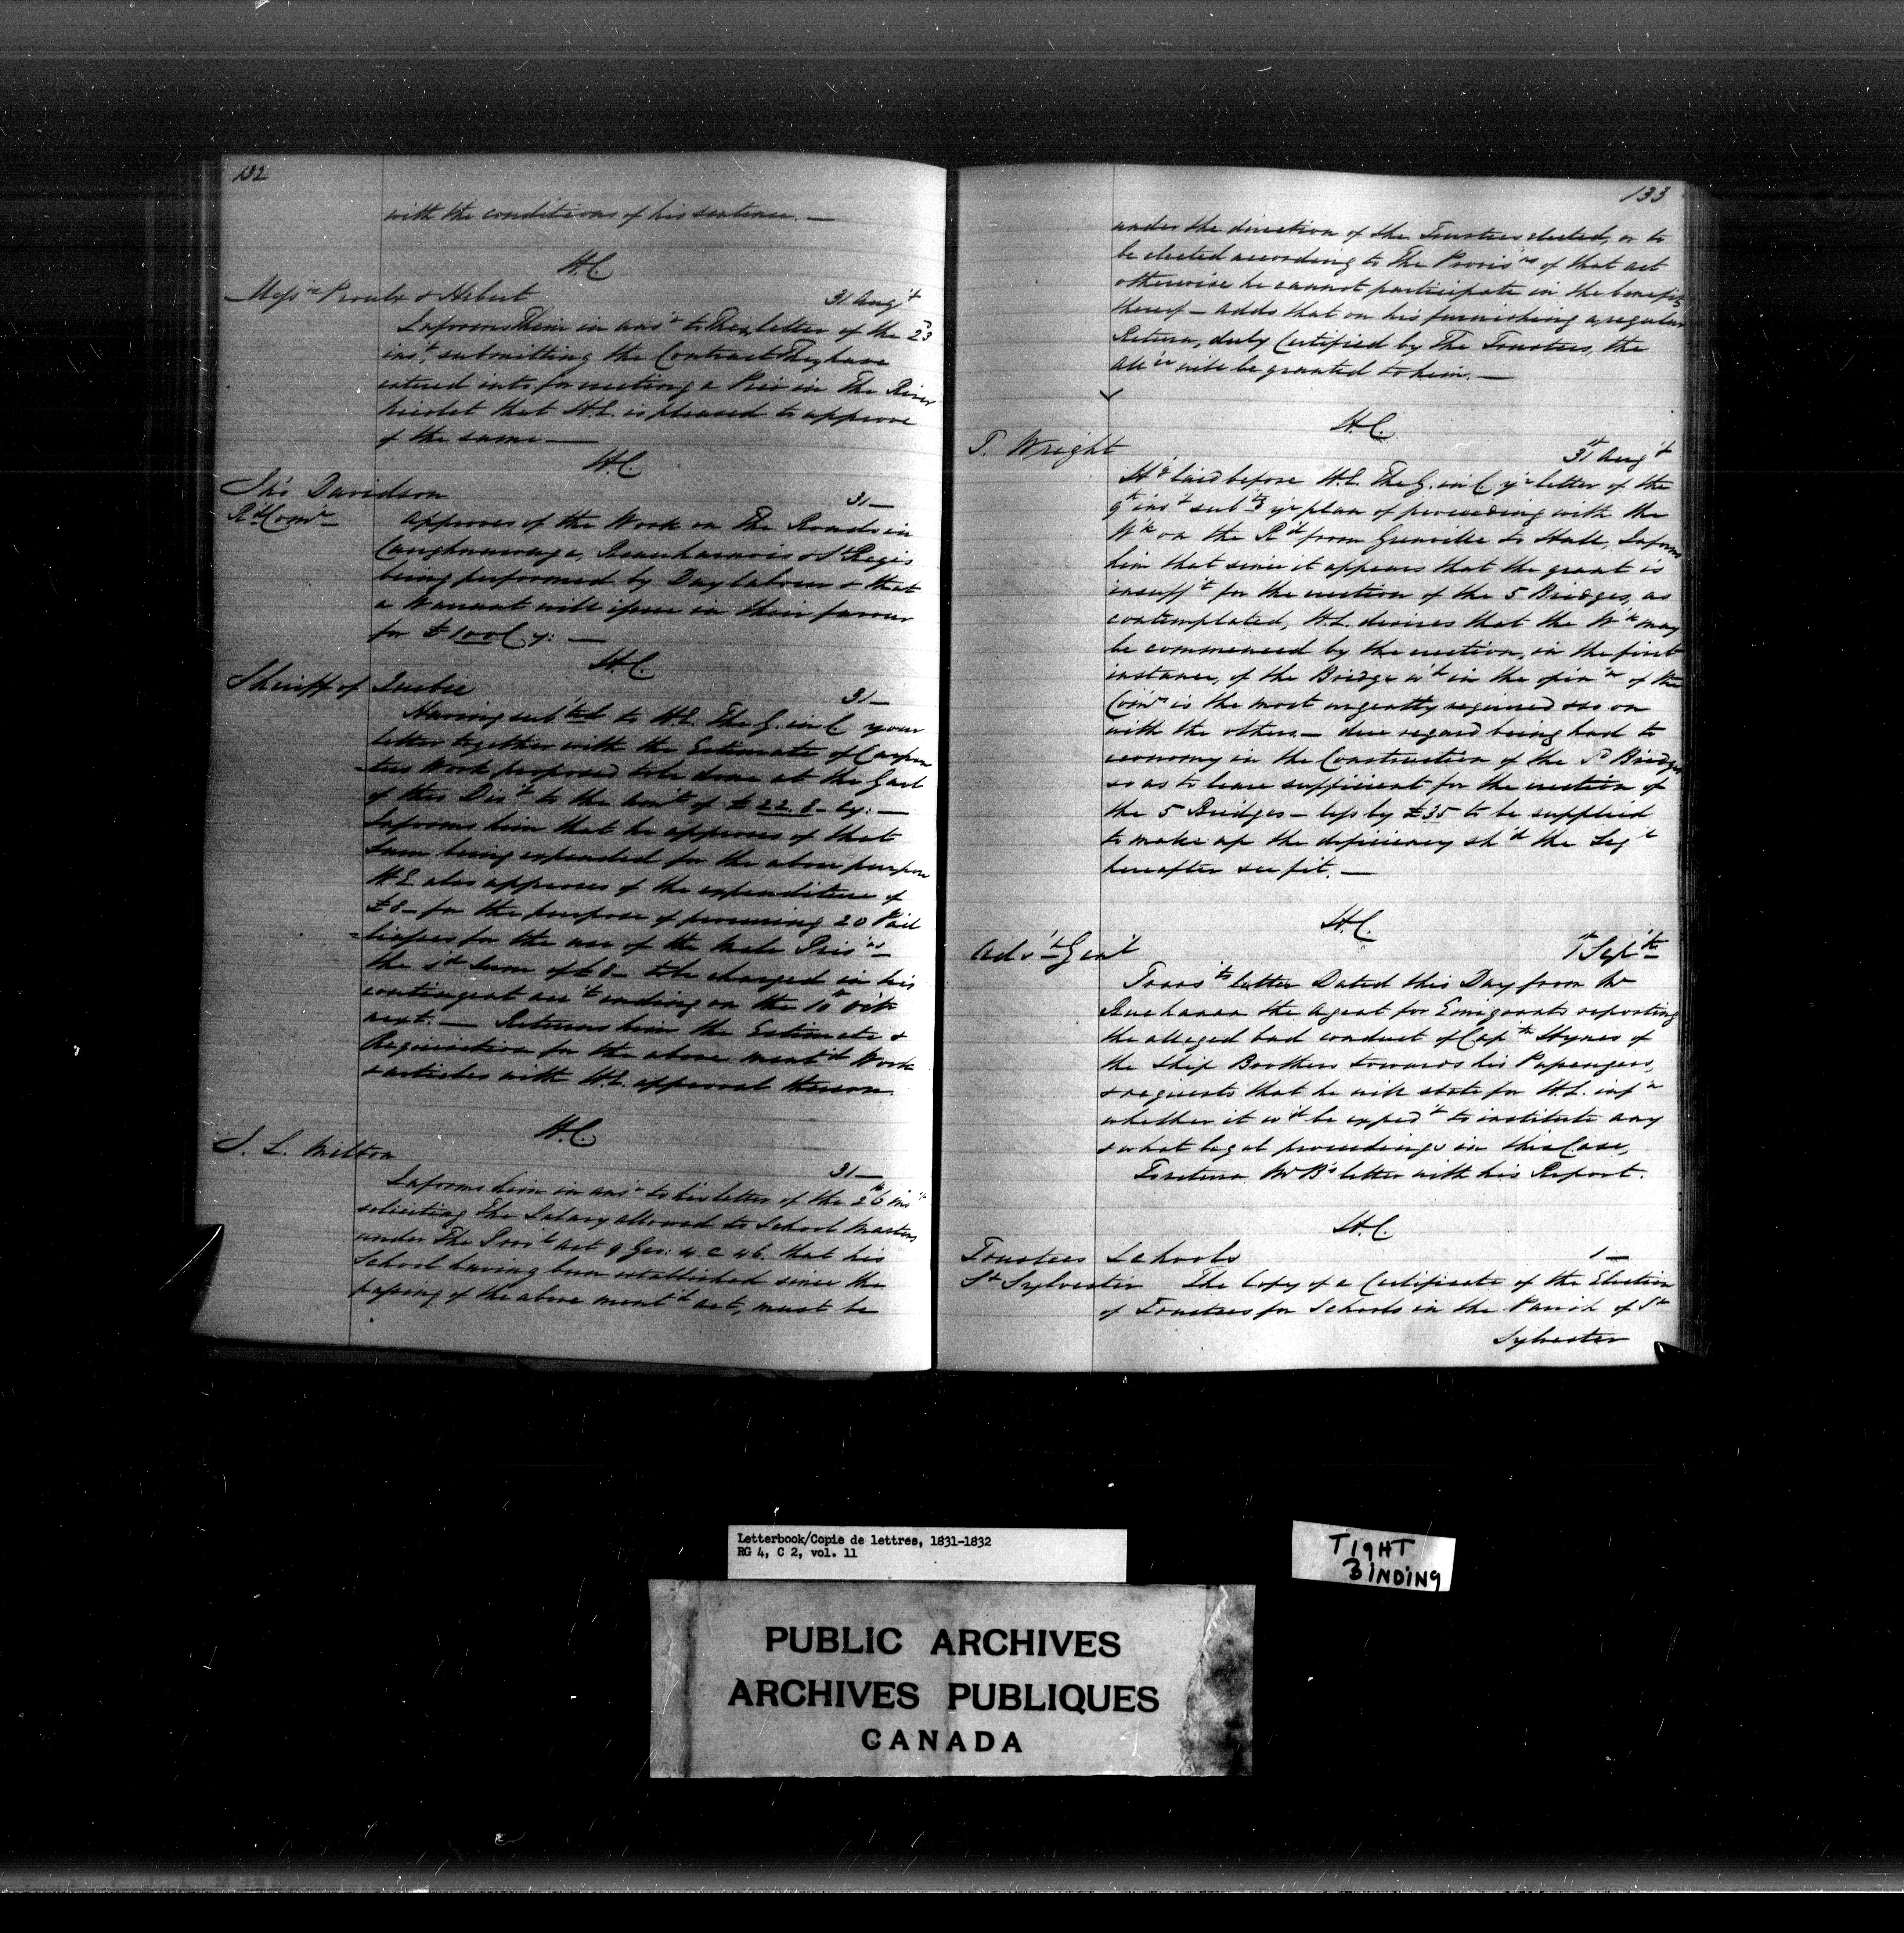 132
with the conditions of his sentence. —
H.C.
Messrs Proulx & Hebert
31 Augt
Informs Them in ansr to Their letter of the 23
inst submitting the Contract They have
entered into for erecting a Pier in The River
Nicolet that H.E. is pleased to approve
of the same —
H.C.
Jno Davidson
31 —
Rd Comr —
Approves of the Work on The Roads in
Caughnawaga, Beauharnois & St Regis
being performed by Day labour & that
a Warrant will issue in their favour
for £100 Cy: —
H.C.
Sheriff of Quebec
31 —
Having subtd to H.E. The G. in C. your
letter together with the Estimate of Carpen
-ters Work proposed to be done at the Gaol
of this Dist to the Amt of £22.8 - Cy: —
Informs him that he approves of that
Sum being expended for the above purpose
H.E. also approves of the expenditure of
£8 - for the purpose of procuring 20 Pail
=liasses for the use of the Male Prisrs —
the sd Sum of £8 - to be charged in his
contingent acct ending on the 10th Octr
next. — Returns him the Estimate &
Requisition for the above mentd Work
& articles with H.E. approval thereon.
H.C.
S. L. Milton
31 —
Informs him in ansr to his letter of the 26th inst
soliciting The Salary allowed to School Masters
under The Provl Act 9 Geo: 4. C 46. that his
School having been established since the
passing of the above mentd act, must be
133
under the direction of the Trustees elected, or to
be elected according to The Provisns of that act
otherwise he cannot participate in the benefits
thereof — adds that on his furnishing a regular
Return, duly Certified by The Trustees, the
Allce will be granted to him. —
H.C.
T. Wright
31st Augt
Hg laid before H.E. The G. in C. yr letter of the
9th inst subtg yr plan of proceeding with the
Wk on the Rd from Grenville to Hull, Informs
him that since it appears that the grant is
insufft for the erection of the 5 Bridges, as
contemplated, H.E. desires that the Wk may
be commenced by the erection, in the first
instance, of the Bridge wh in the opinn of the
Comrs is the most urgently required & so on
with the others — due regard being had to
economy in the Construction of the sd Bridges
so as to leave sufficient for the erection of
the 5 Bridges — less by £35 to be supplied
to make up the deficiency shd the Legre
hereafter see fit. —
H.C.
Advte Genl
1st Septr
Transts letter Dated this Day from Mr
Buchanan the Agent for Emigrants reporting
the alleged bad conduct of Captn Hynes of
the Ship Brothers towards his Passengers,
& requests that he will state for H.E. infn
whether it wd be expedt to institute any
& what legal proceedings in this Case,
To return Mr B's letter with his Report.
H.C.
Trustees Schools
1 —
St Sylvester
The Copy of a Certificate of the Election
of Trustees for Schools in the Parish of St
Sylvester
Letterbook/Copie de lettres, 1831-1832
RG 4, C 2, vol. 11
TIGHT
BINDING
PUBLIC ARCHIVES
ARCHIVES PUBLIQUES
CANADA